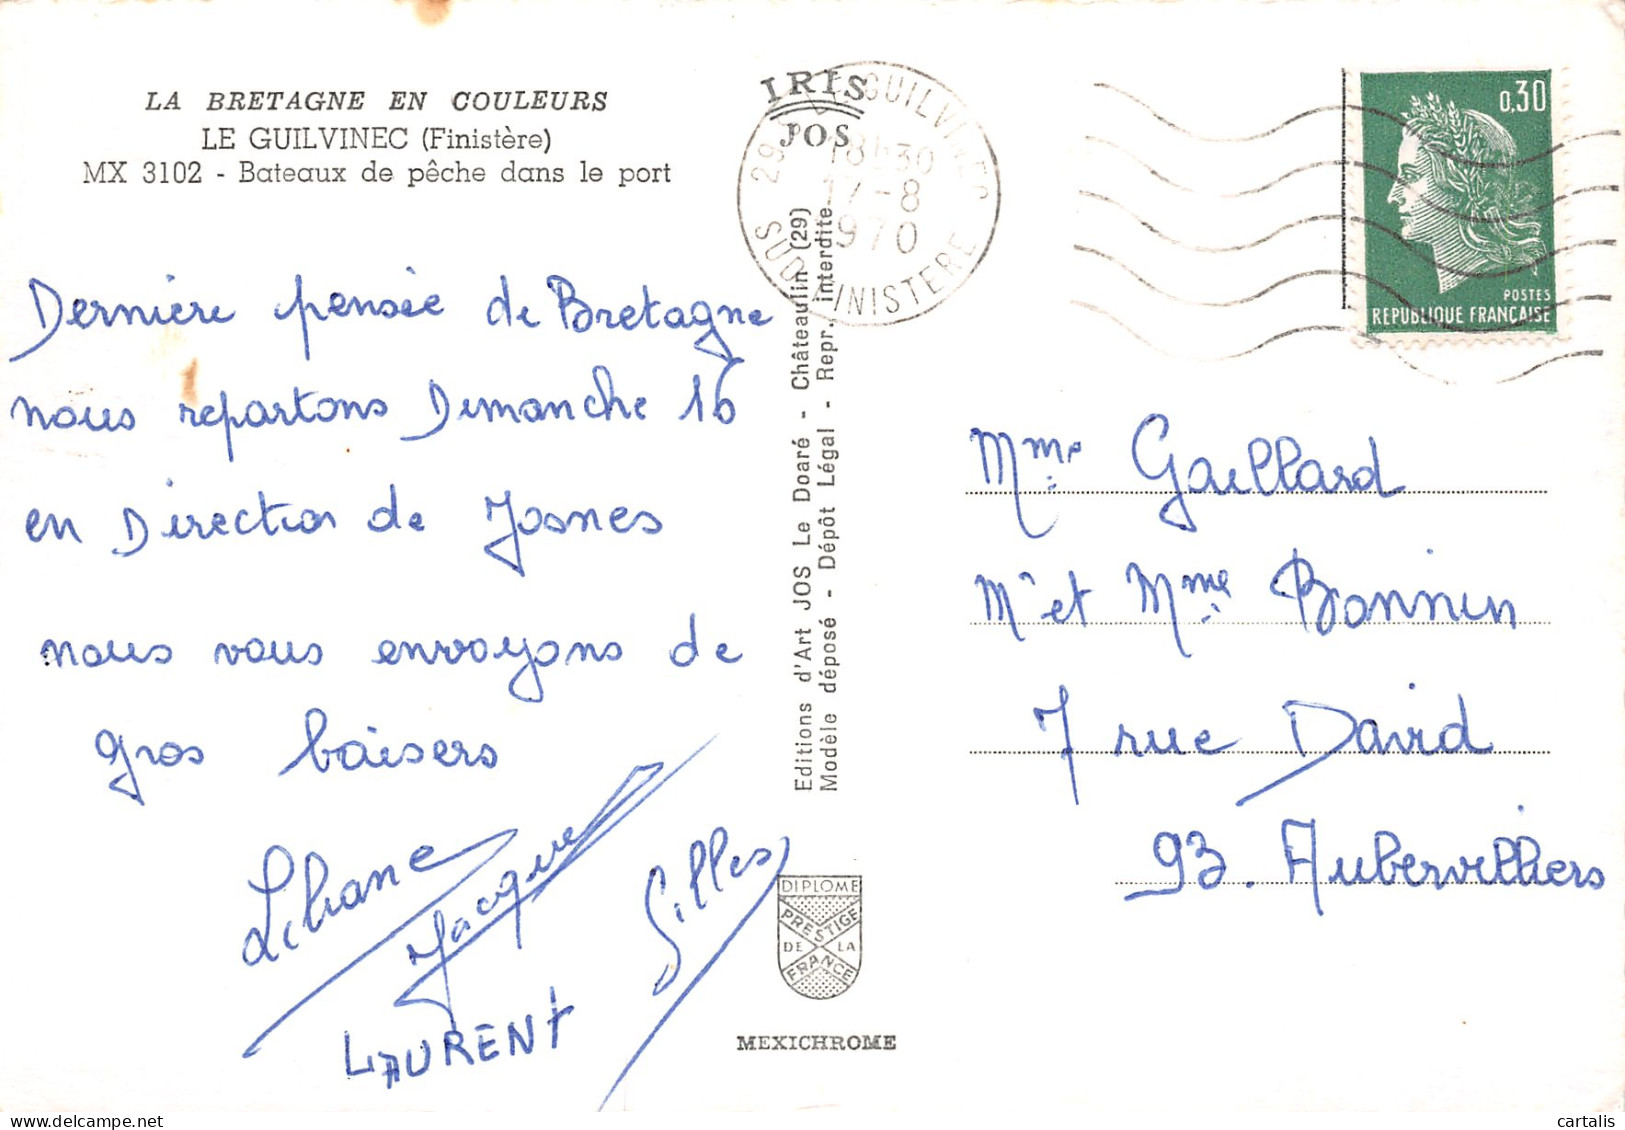 LA BRETAGNE EN COULEURS
LE GUILVINEC (Finistère)
MX 3102 - Bateaux de pêche dans le port
Dernière pensée de Bretagne
nous repartons Dimanche 16
en Direction de Josnes
nous vous envoyons de
gros baisers
Liliane
Jacques
Gilles
LAURENT
IRIS
JOS
Editions d'Art JOS Le Doaré - Châteaulin (29)
Modèle déposé - Dépôt Légal - Repr. interdite
DIPLOME
PRESTIGE
DE LA
FRANCE
MEXICHROME
29 LE GUILVINEC
18h30
17-8
1970
SUD FINISTERE
0,30
POSTES
REPUBLIQUE FRANÇAISE
Mme Gaillard
Mr et Mme Bonnin
7 rue David
93. Aubervilliers
cartalis